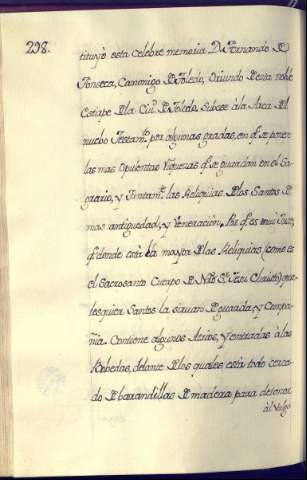 298.
tituyò esta celebre memoria Dn. Fernando D
Fonseca, Canonigo D Toledo, Oriundo D esta noble
Estirpe D la Ciud. D Toledo. Subese à la Arca Dl
nuebo Testamto. por algunas gradas, en q. se ponen
las mas opulentas riquezas q. se guardan en el Sa-
grario, y Juntamte. las Reliquias D los Santos D
mas antiguedad, y Veneracion. Por q. es mui Justo,
q. donde està la mayor D las Reliquias (como es
el Sacrosanto Cuerpo D N. Sr. Jesu Christo) qua-
lesquier Santos la sirvan D guarda, y Compa-
ñia. Contiene algunos Atrios, y entradas à las
Bobedas, delante D los quales està todo cerca-
do D barandillas D madera para detener
al Vulgo